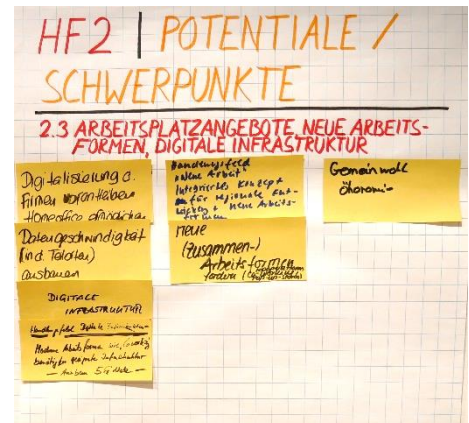 HF2 | POTENTIALE /
SCHWERPUNKTE
2.3 ARBEITSPLATZANGEBOTE, NEUE ARBEITS-
FORMEN, DIGITALE INFRASTRUKTUR
Digitalisierung d.
Firmen vorantreiben
Homeoffice
Datengeschwindigkeit
ausbauen
DIGITALE
INFRASTRUKTUR
Handlungsfeld Digitale Infrastruktur
Moderne Arbeitsformen
benötigen Infrastruktur
Ausbau 5G
Handlungsfeld
"Neue Arbeit"
Integriertes Konzept
für regionale Ent-
wicklung + Neue Arbeits-
formen
Neue
(Zusammen-)
Arbeitsformen
fördern
Gemeinwohl
ökonomie